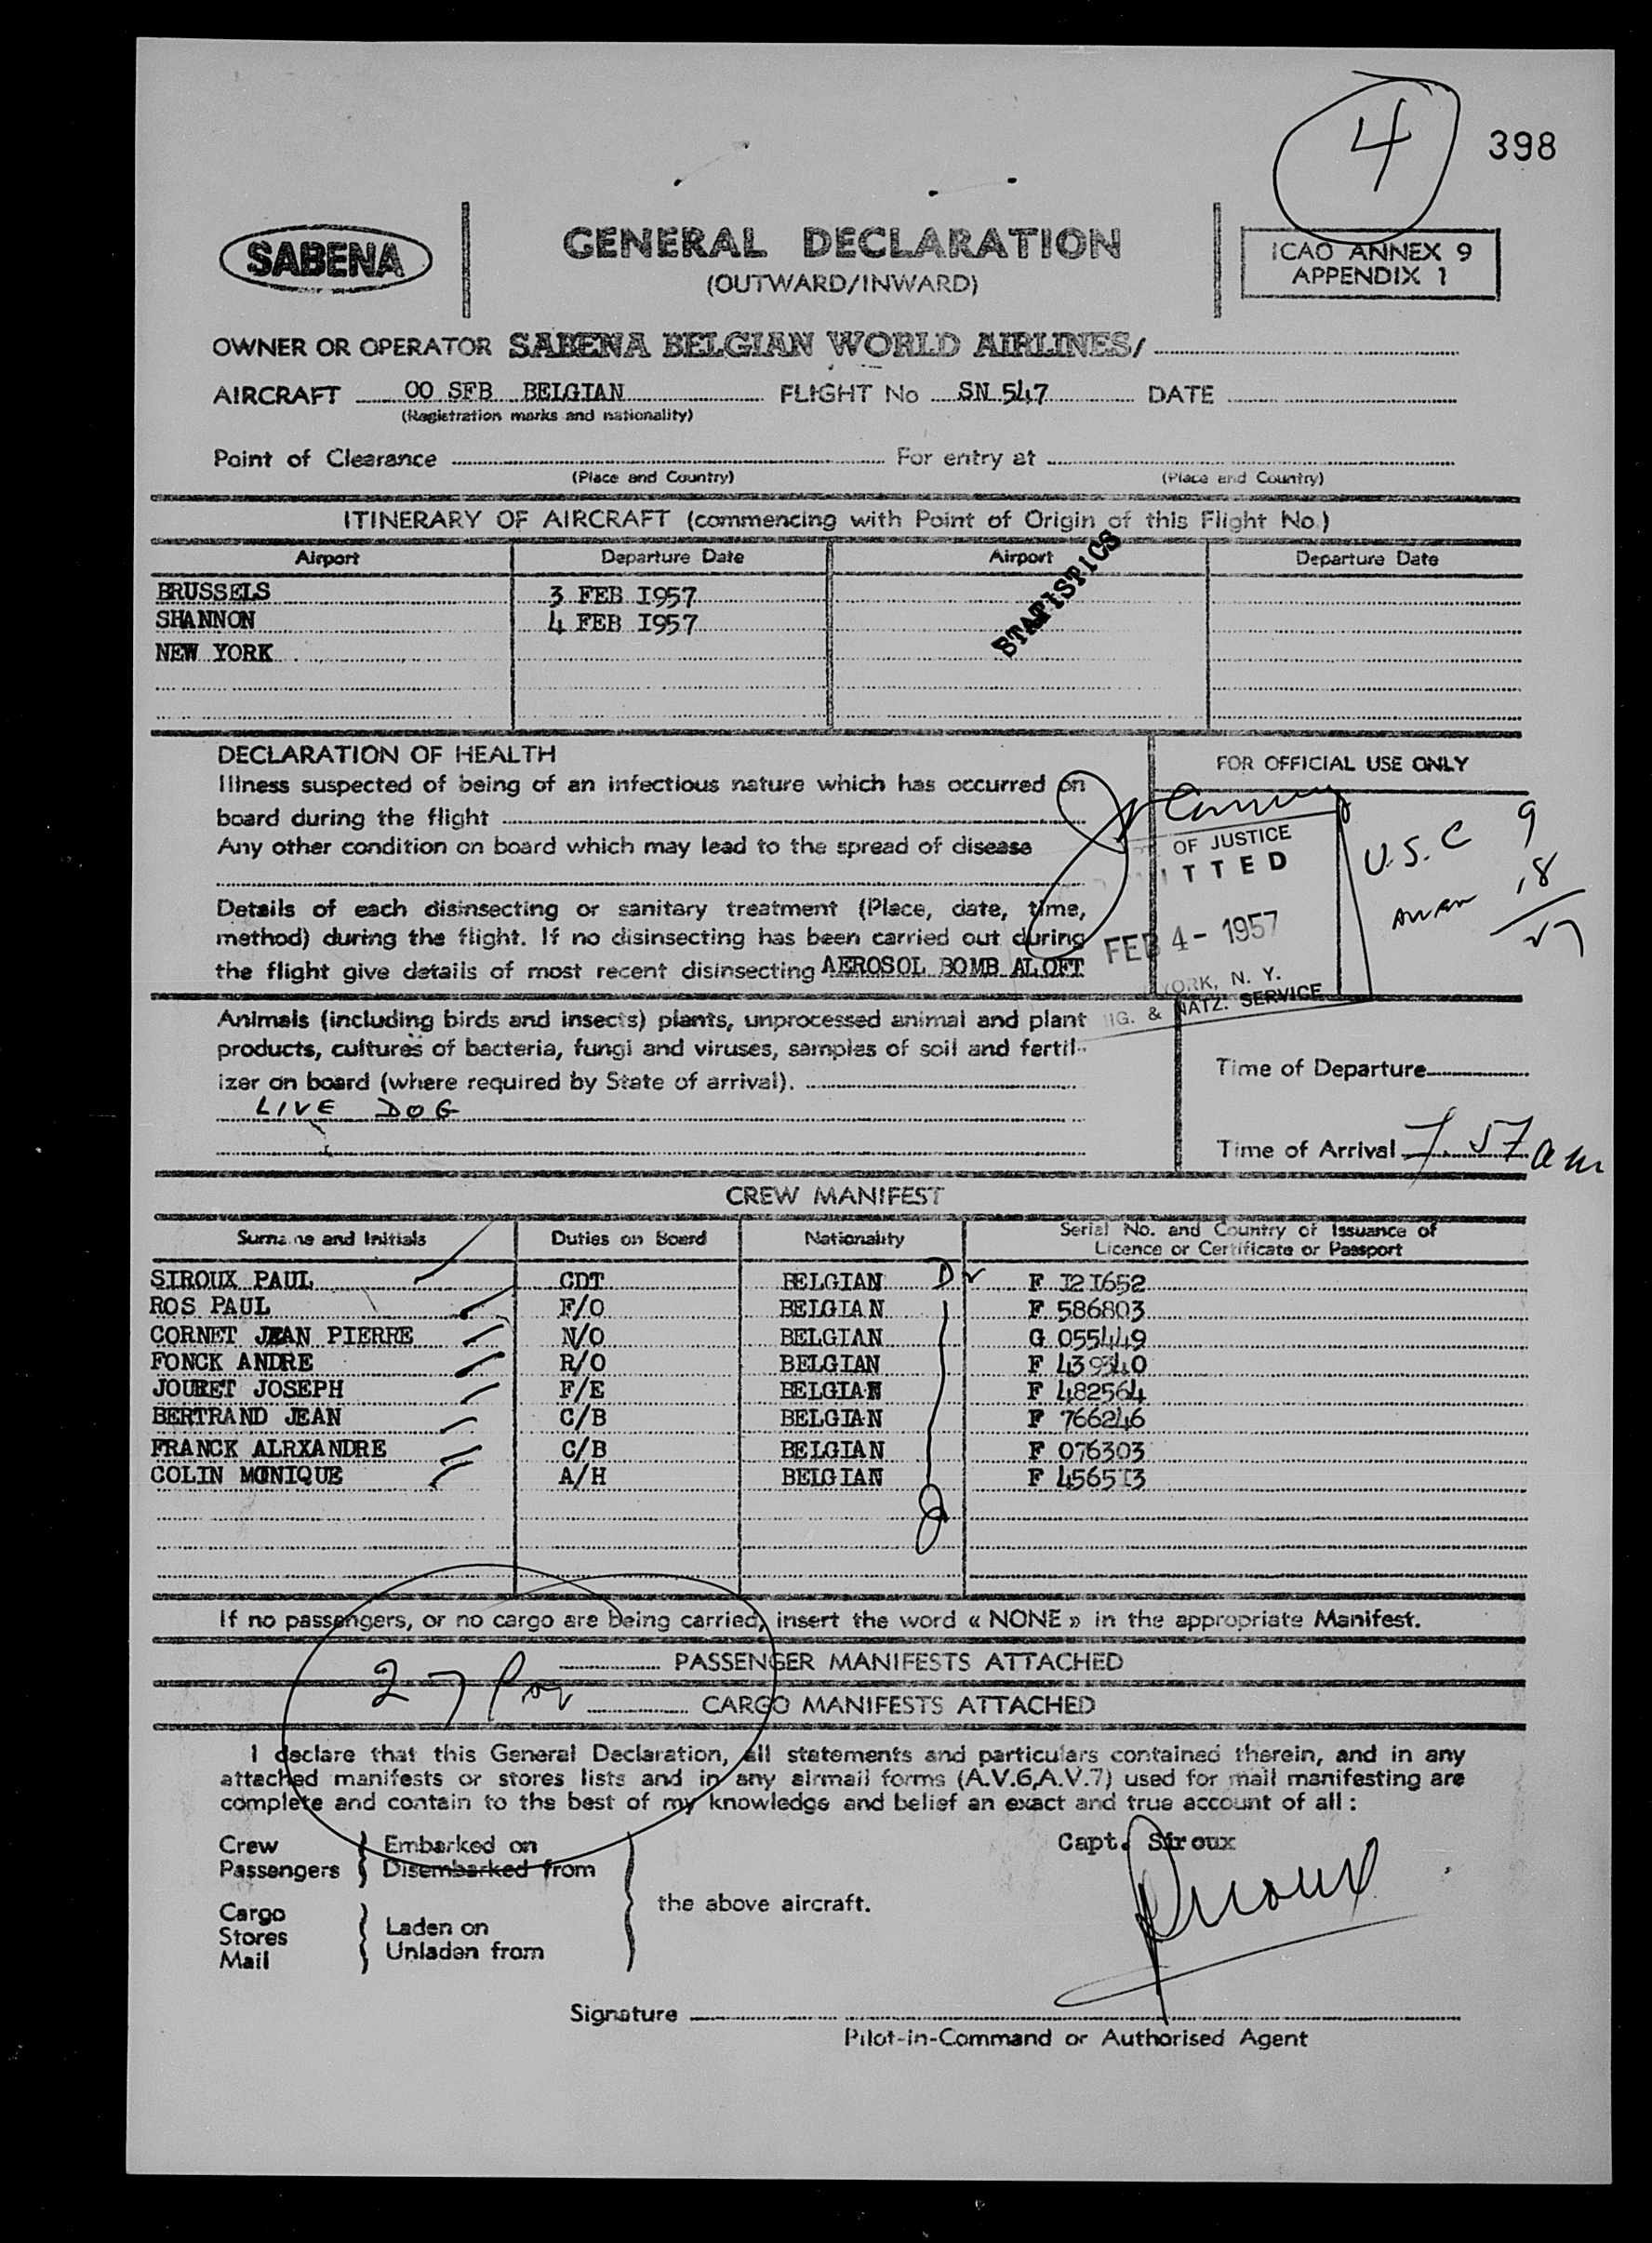 4
398
SABENA
GENERAL DECLARATION
(OUTWARD/INWARD)
ICAO ANNEX 9
APPENDIX 1
OWNER OR OPERATOR SABENA BELGIAN WORLD AIRLINES/
AIRCRAFT OO SFB BELGIAN FLIGHT No SN 547 DATE
(Registration marks and nationality)
Point of Clearance For entry at
(Place and Country) (Place and Country)
ITINERARY OF AIRCRAFT (commencing with Point of Origin of this Flight No.)
Airport Departure Date Airport Departure Date
BRUSSELS 3 FEB 1957
SHANNON 4 FEB 1957
NEW YORK
STATISTICS
DECLARATION OF HEALTH
Illness suspected of being of an infectious nature which has occurred on
board during the flight
Any other condition on board which may lead to the spread of disease
Details of each disinsecting or sanitary treatment (Place, date, time,
method) during the flight. If no disinsecting has been carried out during
the flight give details of most recent disinsecting AEROSOL BOMB ALOFT
FOR OFFICIAL USE ONLY
OF JUSTICE
ITTED
FEB 4 - 1957
ORK, N. Y.
IG. & NATZ. SERVICE
U.S.C 9
18
27
Animals (including birds and insects) plants, unprocessed animal and plant
products, cultures of bacteria, fungi and viruses, samples of soil and fertil-
izer on board (where required by State of arrival).
LIVE DOG
Time of Departure
Time of Arrival 7.57 am
CREW MANIFEST
Surname and Initials Duties on Board Nationality Serial No. and Country of Issuance of
Licence or Certificate or Passport
SIROUX PAUL CDT BELGIAN F 121652
ROS PAUL F/O BELGIAN F 586803
CORNET JEAN PIERRE N/O BELGIAN G 055449
FONCK ANDRE R/O BELGIAN F 439340
JOURET JOSEPH F/E BELGIAN F 482564
BERTRAND JEAN C/B BELGIAN F 766246
FRANCK ALRXANDRE C/B BELGIAN F 076303
COLIN MONIQUE A/H BELGIAN F 456513
If no passengers, or no cargo are being carried, insert the word « NONE » in the appropriate Manifest.
PASSENGER MANIFESTS ATTACHED
27
CARGO MANIFESTS ATTACHED
I declare that this General Declaration, all statements and particulars contained therein, and in any
attached manifests or stores lists and in any airmail forms (A.V.6,A.V.7) used for mail manifesting are
complete and contain to the best of my knowledge and belief an exact and true account of all :
Crew Embarked on
Passengers Disembarked from
Cargo
Stores Laden on
Mail Unladen from
the above aircraft.
Capt. Siroux
Siroux
Signature
Pilot-in-Command or Authorised Agent